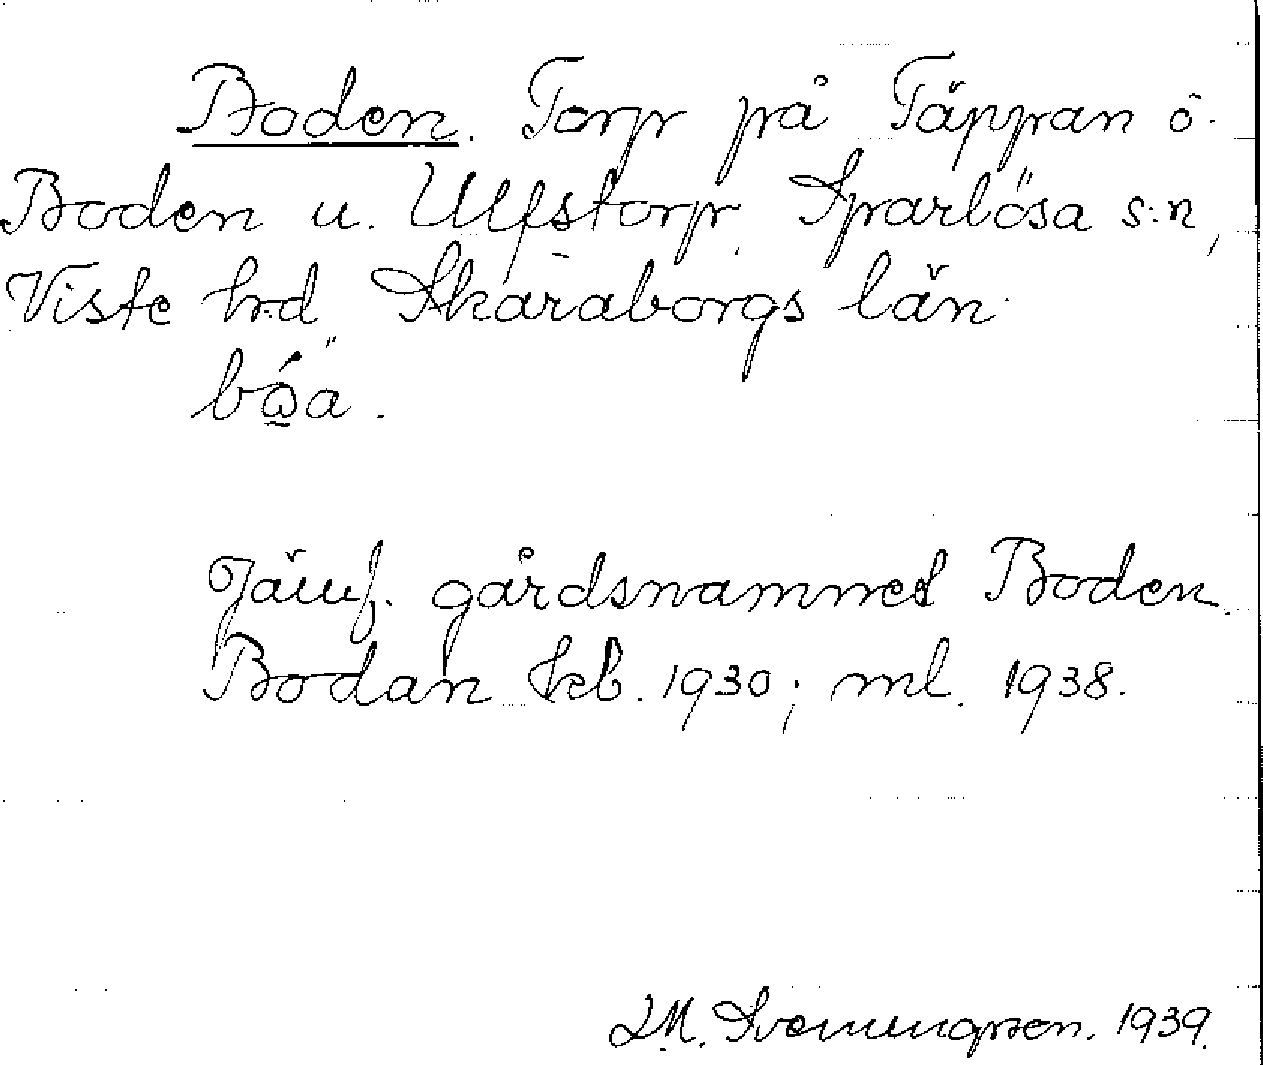 Boden. Torp på Täppan ö.
Boden u. Ulfstorp, Sparlösa s:n,
Viste h:d Skaraborgs län.
Jämf. gårdsnamnet Boden.
Bodan kb. 1930; ml. 1938.
L.M. Svenungsson. 1939.